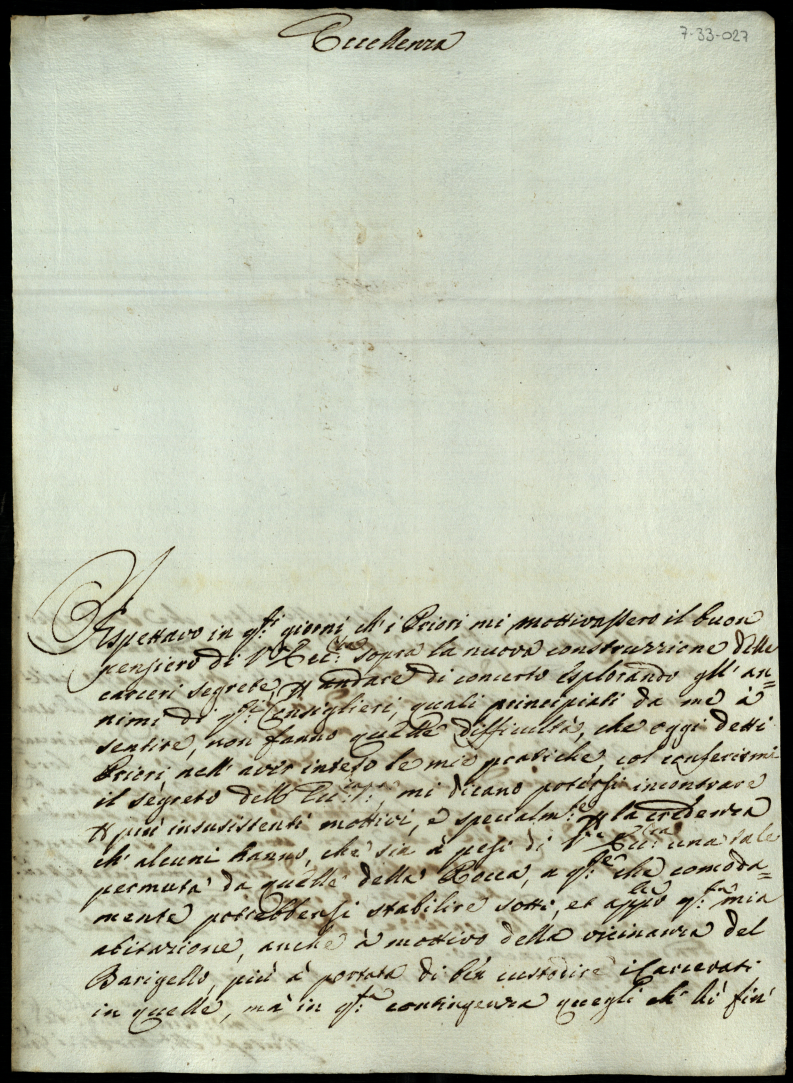 7-33-027
Eccellenza
Aspettavo in q.ti giorni ch'i Priori mi mottivassero il buon
pensiero di V.ra Ecc.za sopra la nuova construzzione delle
carceri segrete, andare di concerto esplorando gll'an=
nimi di q.ti Consiglieri, quali principiati da me à
sentire, non fanno quelle difficultà, che oggi detti
Priori, nell'aver inteso le mie pratiche, col conferirmi
il segreto dell' mi dicano potersi incontrare
più insusistenti mottivi, e specialm.te la credenza
ch'alcuni hanno, che sia à pesi di V.ra Ecc.za una tale
permuta da quelle della Rocca, a q.le che comoda=
mente potrebbensi stabilire sotti, et app.o q.ta mia
abitazione, anche à mottivo della vicinanza del
Barigello, più à portata di ben custodire i Carcerati
in quelle, mà in q.ta contingenza quegli ch'li fin'